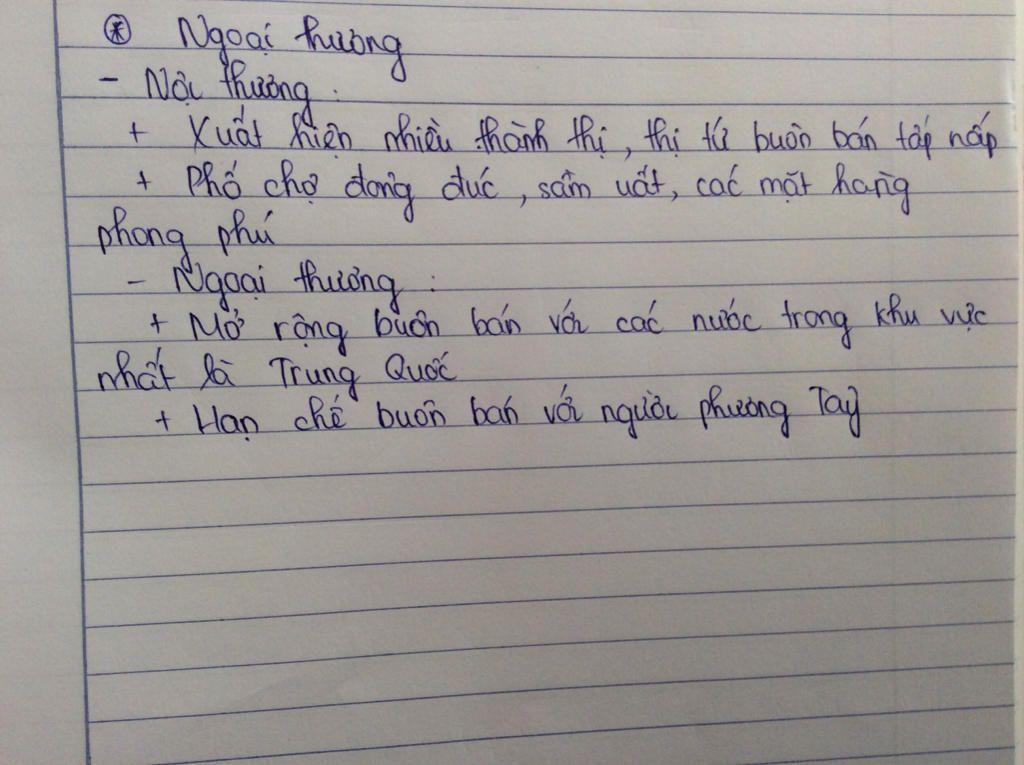 ⊛ Ngoại thương
- Nội thương :
+ Xuất hiện nhiều thành thị, thị tứ buôn bán tấp nấp
+ Phố chợ đong đúc, sầm uất, các mặt hàng
phong phú
- Ngoại thương :
+ Mở rộng buôn bán với các nước trong khu vực
nhất là Trung Quốc
+ Hạn chế buôn bán với người phương Tay